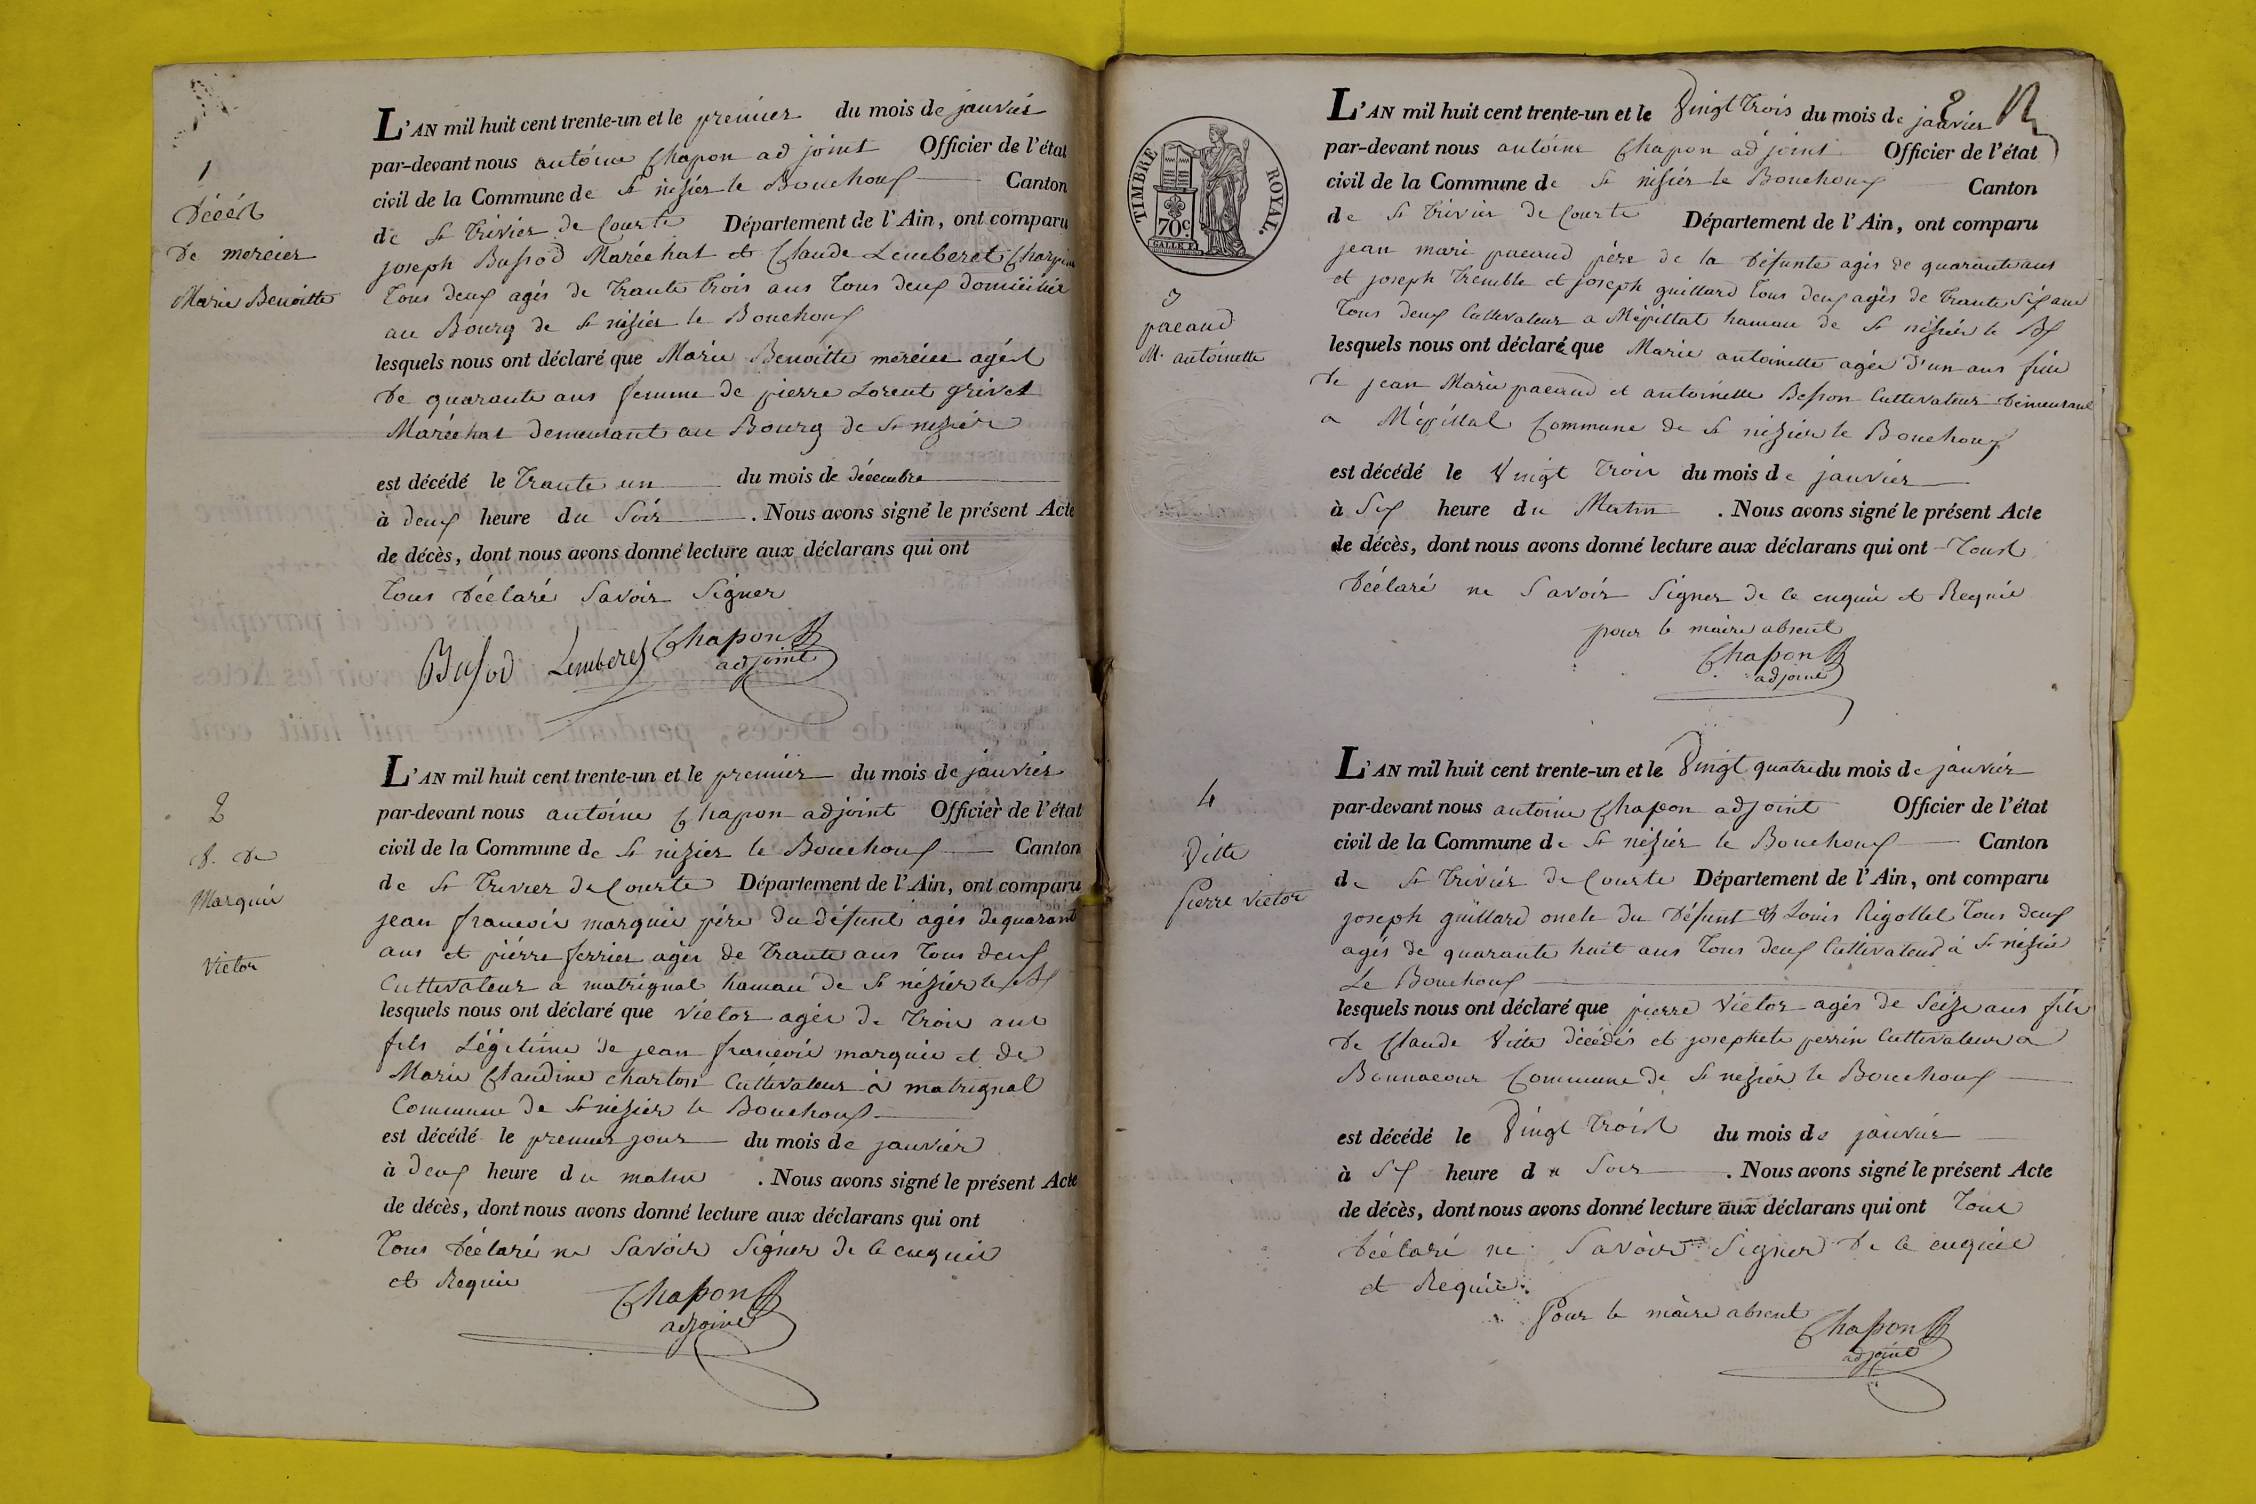 1
Décést
de mercier
Marie Benoitte
L'AN mil huit cent trente-un et le premier du mois de janvier
par-devant nous antoine Chapon ad joint Officier de l'état
civil de la Commune de St nizier le Bouchoux Canton
de St Trivier de Courte Département de l'Ain, ont comparu
joseph Bassod Maréchat et Claude Lemberet
Tous deux agés de Trante Trois ans Tous deux domicilié
au Bourg de St nizier le Bouchoux
lesquels nous ont déclaré que Marie Benoitte mercier agést
de quarante ans femme de pierre Lorent grivet
Maréchat demeurant au Bourg de St nizier
est décédé le Trante un du mois de décembre
à deux heure du Soir . Nous avons signé le présent Acte
de décès, dont nous avons donné lecture aux déclarans qui ont
Tous déclaré Savoir Signer
Bassod Lemberet Chapon
adjoint
2
d. de
Marquis
Victor
L'AN mil huit cent trente-un et le premier du mois de janvier
par-devant nous antoine Chapon adjoint Officier de l'état
civil de la Commune de St nizier le Bouchoux Canton
de St Trivier de Courte Département de l'Ain, ont comparu
jean francois marquis père du défunt agés de quarant
ans et pierre ferrier agés de Trante ans Tous deux
Cultivateur a matrignat hamau de St nézier le Bx
lesquels nous ont déclaré que victor agés de Trois ans
fils Légitime de jean francois marquis et de
Marie Claudine charton Cultivateur à matrignat
Commune de St nizier le Bouchoux
est décédé le premier jour du mois de janvier
à deux heure du matin . Nous avons signé le présent Acte
de décès, dont nous avons donné lecture aux déclarans qui ont
Tous déclaré ne Savoir Signer de ce enquis
et Requis
Chapon
adjoint
2
TIMBRE ROYAL.
70c.
3
pacaud
M. antoinette
L'AN mil huit cent trente-un et le Vingt Trois du mois de janvier
par-devant nous antoine Chapon ad joint Officier de l'état
civil de la Commune de St nizier le Bouchoux Canton
de St Trivier de Courte Département de l'Ain, ont comparu
jean marie pacaud père de la défunte agés de quarante ans
et joseph Tremble et joseph guillard Tous deux agés de Trante Six ans
Tous deux Cultivateur a Mépillat hamau de St nizier le Bx
lesquels nous ont déclaré que Marie antoinette agée d'un ans fille
de jean Marie pacaud et antoinette Besson Cultivateur demeurant
a Mépillat Commune de St nizier le Bouchoux
est décédé le Vingt Trois du mois de janvier
à Six heure du Matin . Nous avons signé le présent Acte
de décès, dont nous avons donné lecture aux déclarans qui ont Tous
déclaré ne Savoir Signer de ce enquis et Requis
pour le maire absent
Chapon
adjoint
4
Vitte
Pierre victor
L'AN mil huit cent trente-un et le Vingt quatre du mois de janvier
par-devant nous antoine Chapon adjoint Officier de l'état
civil de la Commune de St nizier le Bouchoux Canton
de St Trivier de Courte Département de l'Ain, ont comparu
joseph guillard oncle du défunt et Louis Rigottet Tous deux
agés de quarante huit ans Tous deux Cultivateur à St nizier
Le Bouchoux
lesquels nous ont déclaré que pierre Victor agés de Seize ans fils
de Claude Vitte décédés et josephete perrin Cultivateur a
Bonnacour Commune de St nezier le Bouchoux
est décédé le Vingt Trois du mois de janvier
à Six heure du Soir . Nous avons signé le présent Acte
de décès, dont nous avons donné lecture aux déclarans qui ont Tous
déclaré ne Savoir Signer de ce enquis
et Requis.
Pour le maire absent
Chapon
adjoint